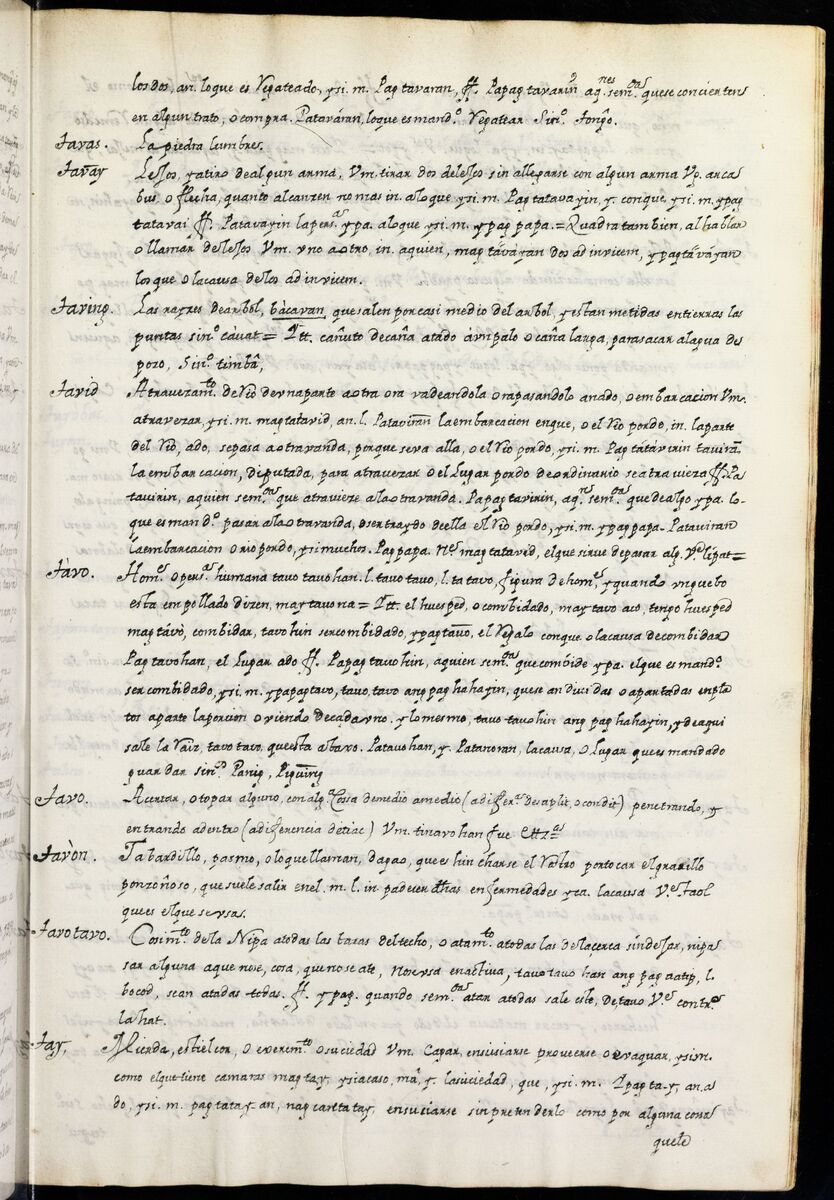 los dos, an. loque es Regateado, ysi. m. Pag tavaran, ff. Papag tavarin aq.nes sem.an quese concierten
en algun trato, o compra. Pataváran, loque es mand.o Regatear Sin.o tongo.
tavas. La piedra lumbre.
tavay Lejos, y a tiro de algun arma, Vm. tirar dos de lejos sin allegarse con algun arma Vg. arca
bus, o flecha, quanto alcanzen no mas in. a loque ysi. m. Pag tatavayin, y. conque, ysi. m. ypag
tatavai ff. Patavayin la pers.a ypa. aloque ysi. m. ypag papa. = Quadra tambien, al hablar
o llamar de lejos Vm. vno a otro, in. aquien, mag tàvàyan dos ad invicem, ypagtàvàyan
los que o la causa de los ad invicem.
taving. Las rayzes de arbol, bàcavan, que salen por casi medio del arbol, y estan metidas en tierras las
puntas sin.o càvat = Itt. cañuto de caña atado à vn palo o caña larga, para sacar alagua de
pozo, Sin.o timbâ,
tavid Atravezam.to de Rio de vna parte a otra ora vadeandola o rapasandolo a nado, o embarcacion Vm.
atravezar, ysi. m. magtatavid, an. l. Pataviran la embarcacion enque, o el Rio pordo, in. la parte
del Rio, ado, se pasa a otra vanda, porque se va alla, o el Rio pordo, ysi. m. Pag tatàvirin taviran
la embarcacion, Diputada, para atravezar o el Lugar pordo de ordinario se atravieza ff. Pa
tavirin, aquien sem.an que atravieze ala otra vanda. Papag tavirin, aq.n sem.an que de algo ypa. lo-
que es man d.o pasar ala otra vanda, o ser traydo de ella el Rio pordo, ysi. m. ypag papa- Pataviran
la embarcacion o rio pordo, ysi muchos. Pag papa. N.e mag tatavid, el que sirve de pasar alg. V.e lipat =
tàvo. Hom.e o pers.a humana tavo tavohan. l. tavo tavo, l. ta tavo, figura de hom.e y quando vn guebo
esta en pollado dizen, may tavo na = Itt. el huesped, o combidado, may tavo aco, tengo huesped
mag tàvò, combidar, tavo hin ser combidado, ypag tavo, el Regalo conque o la causa de combidar
Pag tavohan, el Lugar ado ff. Papag tavohin, aquien sem.an que combide ypa. elque es mand.o
ser combidado, ysi. m. ypapagtavo, tavo, tavo ang pag hahayin, que se an diuididas o apartadas en pla
tos aparte la porcion o viendo de cada vno. y lo mesmo, tavo tavo hin ang pag hahayin, y de aqui
sale la Raiz, tavo tavo, que esta abaxo. Patavohan, y. Patanoran, la causa, o Lugar que es mandado
guardar sin.o Panig, Piguing
tavo. Acertar, o topar alguno, con alg.a Cossa de medio a medio (a difer.a de saplit, o condit) penetrando, y
entrando adentro (a diferencia de tiac) Vm. tinavohan fue ettz.a
tavòn. Tabardillo, pasmo, o loque llaman, dagao, que es hincharse el Rostro por tocar el gusarillo
ponzoñoso, que suele salir en el. m. l. in padecer dhas enfermedades yca. la causa V.e taol
que es elque se vsa.
tavotavo. Cosim.to de la Nipa a todas las taxas del techo, o atam.to atodas las de la cerca sin dejar, ni pa
sar alguna aque no se, cosa, que no se ate, No se vsa en activa, tavo tavo han ang pag aatip, l.
bocod, sean atadas todas. ff. ypag. quando sem.an atar atodas sale este, de tavo V.e contr.a
lahat.
tay, Mierda, estiercor, o excrem.to o suciedad Vm. Cagar, ensusiarse proveerse o evaquar, ysi m.
como elque tiene camaras mag tay, ysi acaso, ma, y. la suciedad, que, ysi. m. Ipag ta-y, an. a
do, ysi. m. pag tatay-an, nag catitatay, ensuciarse sin pretenderlo como por alguna cossa
quele